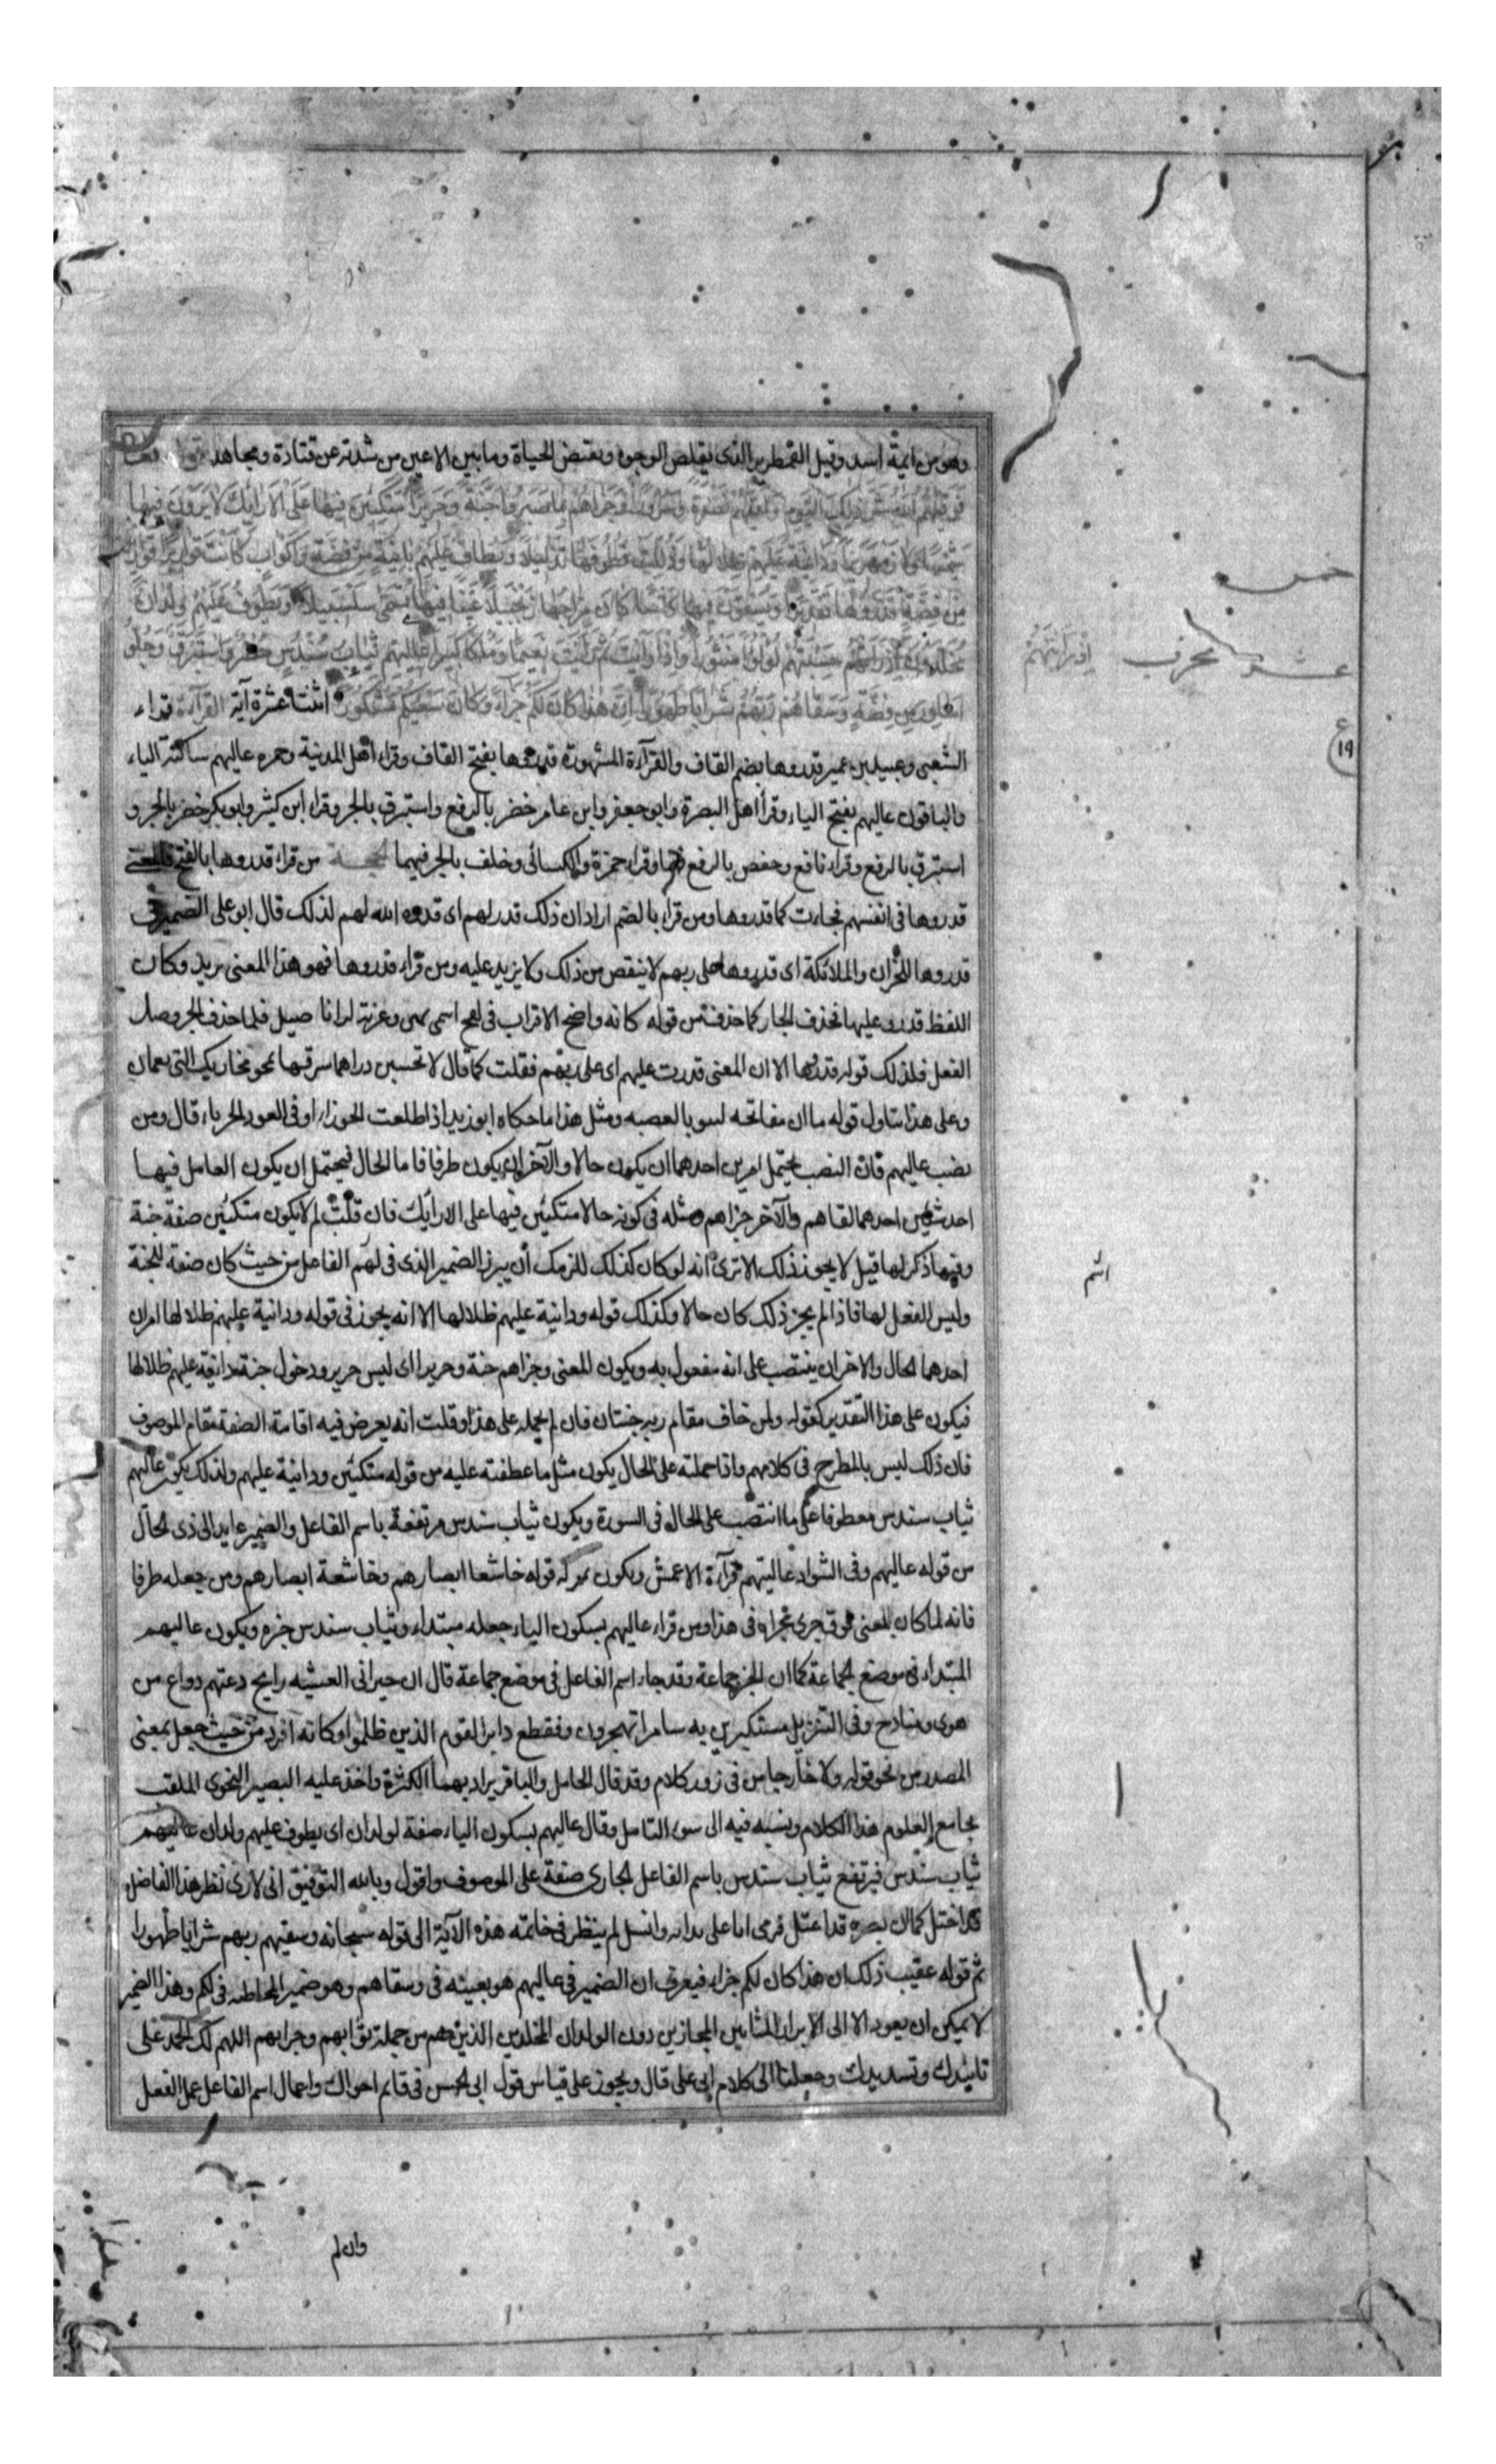 وهو من ايمة اسد وقيل القمطرير الذى يقلص الوجوه ويقبض الحياة ومابين الاعين من شدته عن قتادة ومجاهد
فَوَقٰيهُمُ اللهُ شَرَّ ذٰلِكَ الْيَوْمِ وَلَقّٰيهُمْ نَضْرَةً وَسُرُورًا وَجَزٰاهُمْ بِمَا صَبَرُوا جَنَّةً وَحَرِيرًا مُتَّكِئِينَ فِيهَا عَلَى الْاَرَائِكِ لَا يَرَوْنَ فِيهَا
شَمْسًا وَلَا زَمْهَرِيرًا وَدَانِيَةً عَلَيْهِمْ ظِلَالُهَا وَذُلِّلَتْ قُطُوفُهَا تَذْلِيلًا وَيُطَافُ عَلَيْهِمْ بِاٰنِيَةٍ مِنْ فِضَّةٍ وَاَكْوَابٍ كَانَتْ قَوَارِيرَا قَوَارِيرَ
مِنْ فِضَّةٍ قَدَّرُوهَا تَقْدِيرًا وَيُسْقَوْنَ فِيهَا كَاْسًا كَانَ مِزَاجُهَا زَنْجَبِيلًا عَيْنًا فِيهَا تُسَمّٰى سَلْسَبِيلًا وَيَطُوفُ عَلَيْهِمْ وِلْدَانٌ
مُخَلَّدُونَ اِذَا رَاَيْتَهُمْ حَسِبْتَهُمْ لُؤْلُؤًا مَنْثُورًا وَاِذَا رَاَيْتَ ثَمَّ رَاَيْتَ نَعِيمًا وَمُلْكًا كَبِيرًا عَالِيَهُمْ ثِيَابُ سُنْدُسٍ خُضْرٌ وَاِسْتَبْرَقٌ وَحُلُّوا
اَسَاوِرَ مِنْ فِضَّةٍ وَسَقَاهُمْ رَبُّهُمْ شَرَابًا طَهُورًا اِنَّ هٰذَا كَانَ لَكُمْ جَزَاءً وَكَانَ سَعْيُكُمْ مَشْكُورًا اثنتا عشرة آية القراءة قراء
الشعبى وعبيد بن عمير قدروها بضم القاف والقرآءة المشهورة قدروها بفتح القاف وقراء اهل المدنية وحمزه عاليهم ساكنة الياء
والباقون عاليهم بفتح الياء وقرأ اهل البصرة وابو جعفر وابن عامر خضر بالرفع واستبرق بالجر وقراء ابن كثير وابوبكر خضر بالجر و
استبرق بالرفع وقراء نافع وحفص بالرفع فيهما وقراء حمزة والكسائى وخلف بالجر فيهما الحجة من قراء قدروها بالفتح فالمعنى
قدروها فى انفسهم فجاءت كما قدروها ومن قراء بالضم اراد ان ذلك قدر لهم اى قدره الله لهم لذلك قال ابو على الضمير فى
قدروها للخزان والملائكة اى قدروها على ربهم لا ينقص من ذلك ولا يزيد عليه ومن قراء قدروها فهو هذا المعنى يريد وكان
اللفظ قدروا عليها فحذف الجار كما حذفت من قوله كانه واضح الاقراب فى لقح اسمى بهن وعزته الاناصيل فلما حذف الجر وصل
الفعل فلذلك قوله قدروها الا ان المعنى قدرت عليهم اى على ربهم فقلت كما قال لا تحسبن دراهما سرقتها تمحو مخازيك التى بعمان
وعلى هذا يتاول قوله ما ان مفاتحه لتنوء بالعصبه ومثل هذا ما حكاه ابو زيد اذا طلعت الجوزاء اوفى العود الحرباء قال ومن
نصب عاليهم فان النصب يحتمل امرين احدهما ان يكون حالا والآخر ان يكون ظرفا فاما الحال فيحتمل ان يكون العامل فيها
احد شيئين احدهما لقاهم والآخر جزاهم ومثله فى كونه حالا متكئين فيها على الارآئك فان قلت لم لا يكون متكئين صفة جنة
وفيها ذكر لها قيل لا يجوز ذلك الا ترى انه لو كان كذلك للزمك أن يبرز الضمير الذى فى اسم الفاعل من حيث كان صفة للجنة
وليس الفعل لها فاذا لم يجز ذلك كان حالا وكذلك قوله ودانية عليهم ظلالها الا انه يجوز فى قوله ودانية عليهم ظلالها امران
احدهما الحال والاخر ان ينتصب على انه مفعول به ويكون المعنى وجزاهم جنة وحريرا اى لبس حرير ودخول جنة دانية عليهم ظلالها
فيكون على هذا التقدير كقوله ولمن خاف مقام ربه جنتان فان لم يحمله على هذا وقلت انه يعرض فيه اقامة الصفة مقام الموصوف
فان ذلك ليس بالمطرح فى كلامهم واذا حملته على الحال يكون مثل ما عطفته عليه من قوله متكئين ودانية عليهم ولذلك يكون عاليهم
ثياب سندس معطوفا على ما انتصب على الحال فى السورة ويكون ثياب سندس مرتفعة باسم الفاعل والضمير عايد الى ذى الحال
من قوله عاليهم وفى الشواذ عاليتهم قرآءة الاعمش ويكون بمنزلة قوله خاشعا ابصارهم وخاشعة ابصارهم ومن جعله ظرفا
فانه لما كان المعنى فوق جرى مجراه فى هذا ومن قراء عاليهم بسكون الياء جعله مبتداء وثياب سندس خبره ويكون عاليهم
المبتداء فى موضع الجماعة كما ان الخبر جماعة وقد جاء اسم الفاعل فى موضع جماعة قال ان جيرانى العشيه رايح دعتهم دواع من
هوى ومنادح وفى التنزيل مستكبرين به سامرا تهجرون وفقطع دابر القوم الذين ظلموا وكانه افرد من حيث جعل بمعنى
المصدر من نحو قوله ولا خارجا من فى زور كلام وقد قال الجامل والباقر يراد بهما الكثرة واخذ عليه البصير النحوى الملقب
بجامع العلوم هذا الكلام ونسبه فيه الى سوء التامل وقال عاليهم بسكون الياء صفة لولدان اى يطوف عليهم ولدان عاليهم
ثياب سندس فيرتفع ثياب سندس باسم الفاعل الجارى صفة على الموصوف واقول وبالله التوفيق انى لارى نظر هذا الفاضل
قد اختل كمالن بصره قد اعتل فرمى اباعلى بدائه وانسل لم ينظر فى خاتمه هذه الآية الى قوله سبحانه وسقيهم ربهم شرابا طهورا
ثم قوله عقيب ذلك ان هذا كان لكم جزاء فيعرف ان الضمير فى عاليهم هو بعينه فى وسقاهم وهو ضمير المخاطب فى لكم وهذا الضمير
لا يمكن ان يعود الا الى الابرار المثابين المجازين دون الولدان المخلدين الذين هم من جملة ثوابهم وجزابهم اللهم لك الحمد على
تائيدك وتسديدك وجعلنا الى كلام ابى على قال ويجوز على قياس قول ابى الحسن فى قايم اخواك واعمال اسم الفاعل عمل الفعل
خمس
عشر
محرف
اِذَا رَاَيْتَهُمْ
ع
١٩
اسم
وان لم